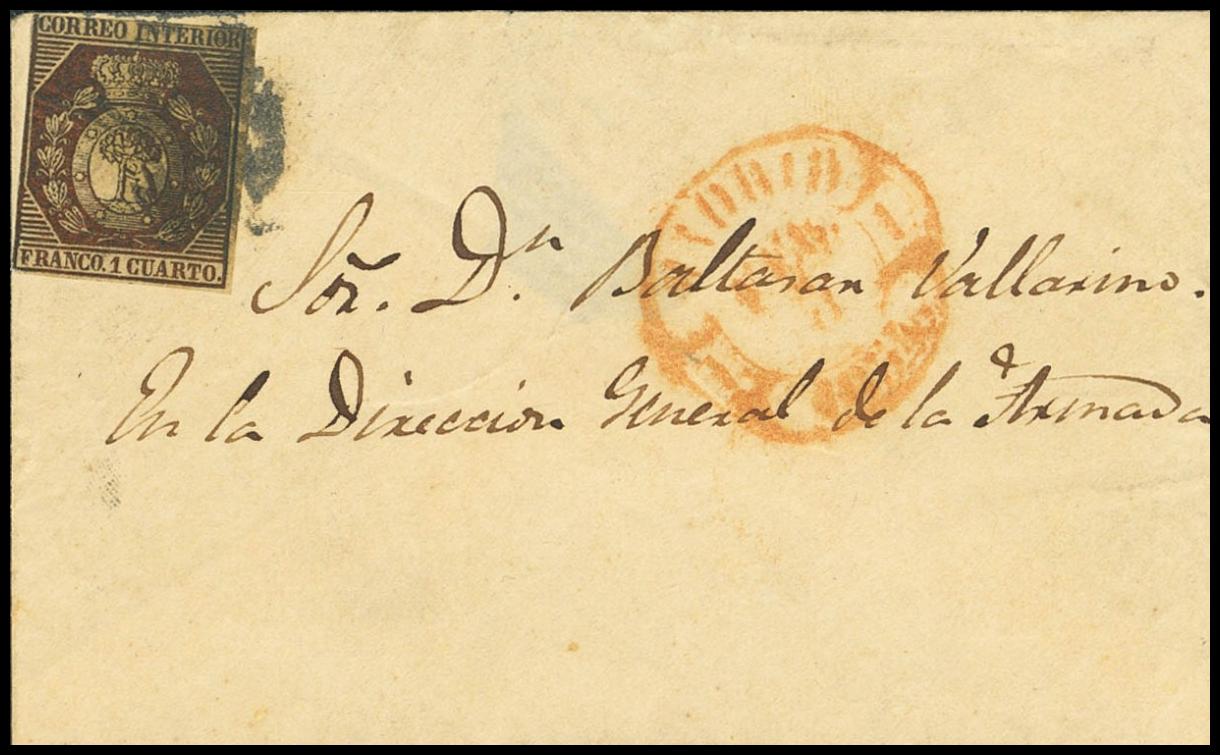 CORREO INTERIOR
FRANCO. 1 CUARTO.
MADRID 1
Sor. Dn. Baltasar Vallarino.
En la Direccion General de la Armada